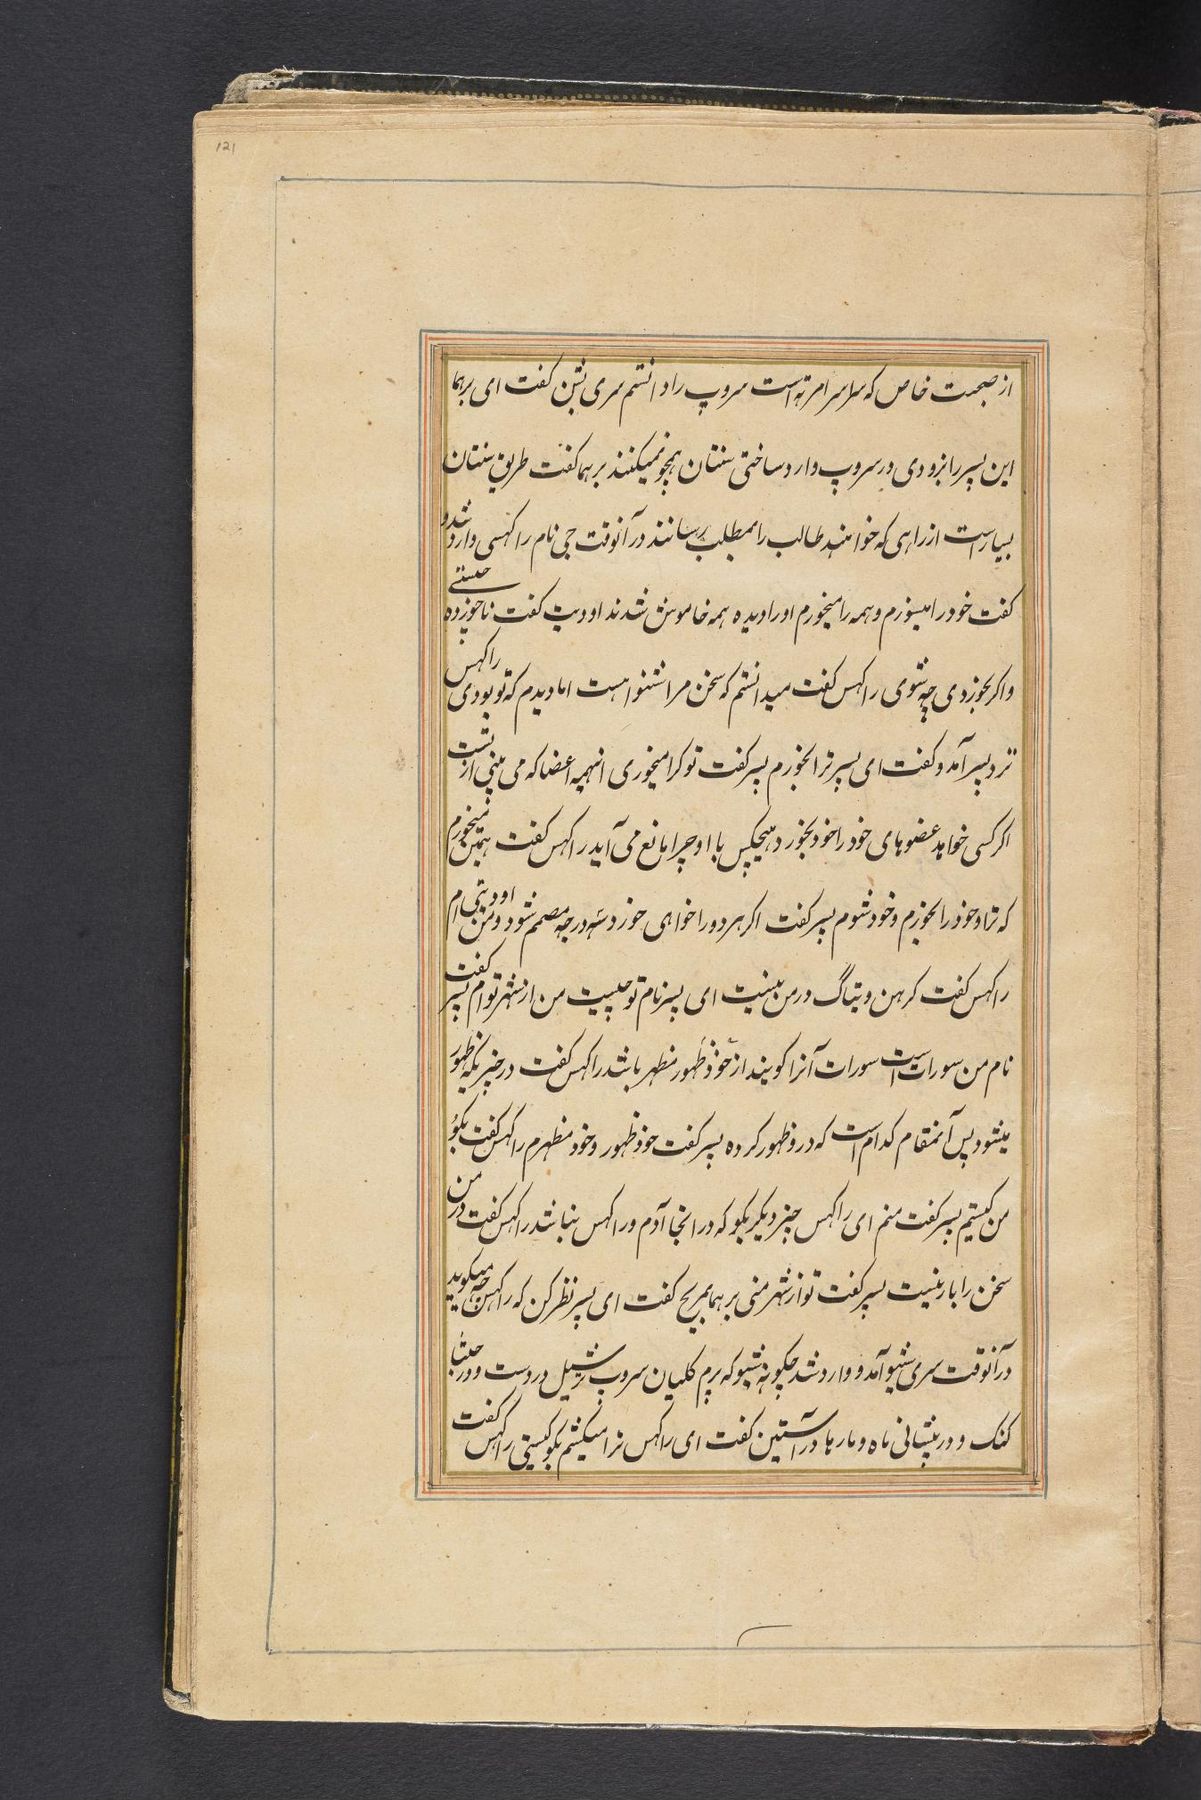 121
از صحبت خاص که سراسر امرته است سروپ را دانستم سری بشن گفت ای برهما
این پسر را بزودی در سروپ وارد ساختی سنتان همچو میکنند برهما گفت طریق سنتان
بسیار است از راهی که خواهند طالب را بمطلب رسانند در آنوقت جی نام راکهسی وارد شد و
گفت خود را میخورم و همه را میخورم او را دیده همه خاموش شدند اودیت گفت ناخورده چیستی
و اگر بخوردی چه شوی راکهس گفت میدانستم که سخن مرا شنوا هست اما دیدم که تو بودی راکهس
نزد پسر آمد و گفت ای پسر ترا بخورم پسر گفت تو کرا میخوری اینهمه اعضا که می بینی از تست
اگر کسی خواهد عضوهای خود را خود بخورد هیچکس با او چرا مانع می آید راکهس گفت همین میخورم
که ترا و خود را بخورم و خود شوم پسر گفت اگر هر دو را خواهی خورد سه درجه مصمم شود و من اودیتی ام
راکهس گفت گرهن و تیاگ در من نیست ای پسر نام تو چیست من از شهر توام پسر گفت
نام من سورات است سورات آنرا گویند از خود ظهور مظهر باشد راکهس گفت در چیزیکه ظهور
میشود پس آنمقام کدام است که درو ظهور کرده پسر گفت خود ظهور و خود مظهرم راکهس گفت بگو
من کیستم پسر گفت منم ای راکهس چیز دیگر بگو که در اینجا آدم و راکهس نباشد راکهس گفت در من
سخن را بار نیست پسر گفت تو از شهر منی برهما بمریچ گفت ای پسر نظر کن که راکهس چه میگوید
در آنوقت سری شیو آمد و وارد شد چگونه شیو که پرم کلیان سروپ ترشیل در دست و در جتا
گنگ و در پیشانی ماه و مارها در آستین گفت ای راکهس ترا میکشم بگو کیستی راکهس گفت